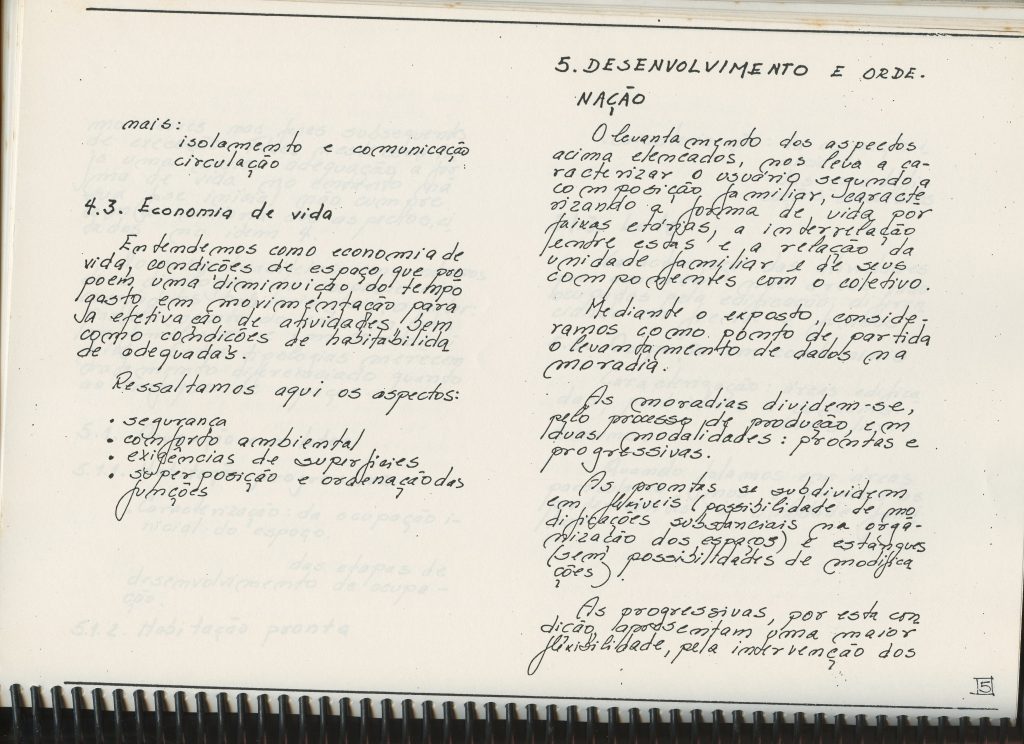 mais:
isolamento e comunicação
circulação
4.3. Economia de vida
Entendemos como economia de
vida, condições de espaço, que pro
poem uma diminuição do tempo
gasto em movimentação para
a efetivação de atividades, bem
como condições de habitabilida
de adequadas.
Ressaltamos aqui os aspectos:
• segurança
• conforto ambiental
• exigências de superfícies
• superposição e ordenação das
funções
5. DESENVOLVIMENTO E ORDE-
NAÇÃO
O levantamento dos aspectos
acima elencados, nos leva a ca-
racterizar o usuário segundo a
composição familiar, caracte
rizando a forma de vida por
faixas etárias, a interrelação
entre estas e a relação da
unidade familiar e de seus
componentes com o coletivo.
Mediante o exposto, conside-
ramos como ponto de partida
o levantamento de dados na
moradia.
As moradias dividem-se,
pelo processo de produção, em
duas modalidades: prontas e
progressivas.
As prontas se subdividem
em flexíveis (possibilidade de mo
dificações substanciais na orga-
nização dos espaços) e estanques
(sem possibilidades de modifica
ções).
As progressivas, por esta con
dição, apresentam uma maior
flexibilidade, pela intervenção dos
5